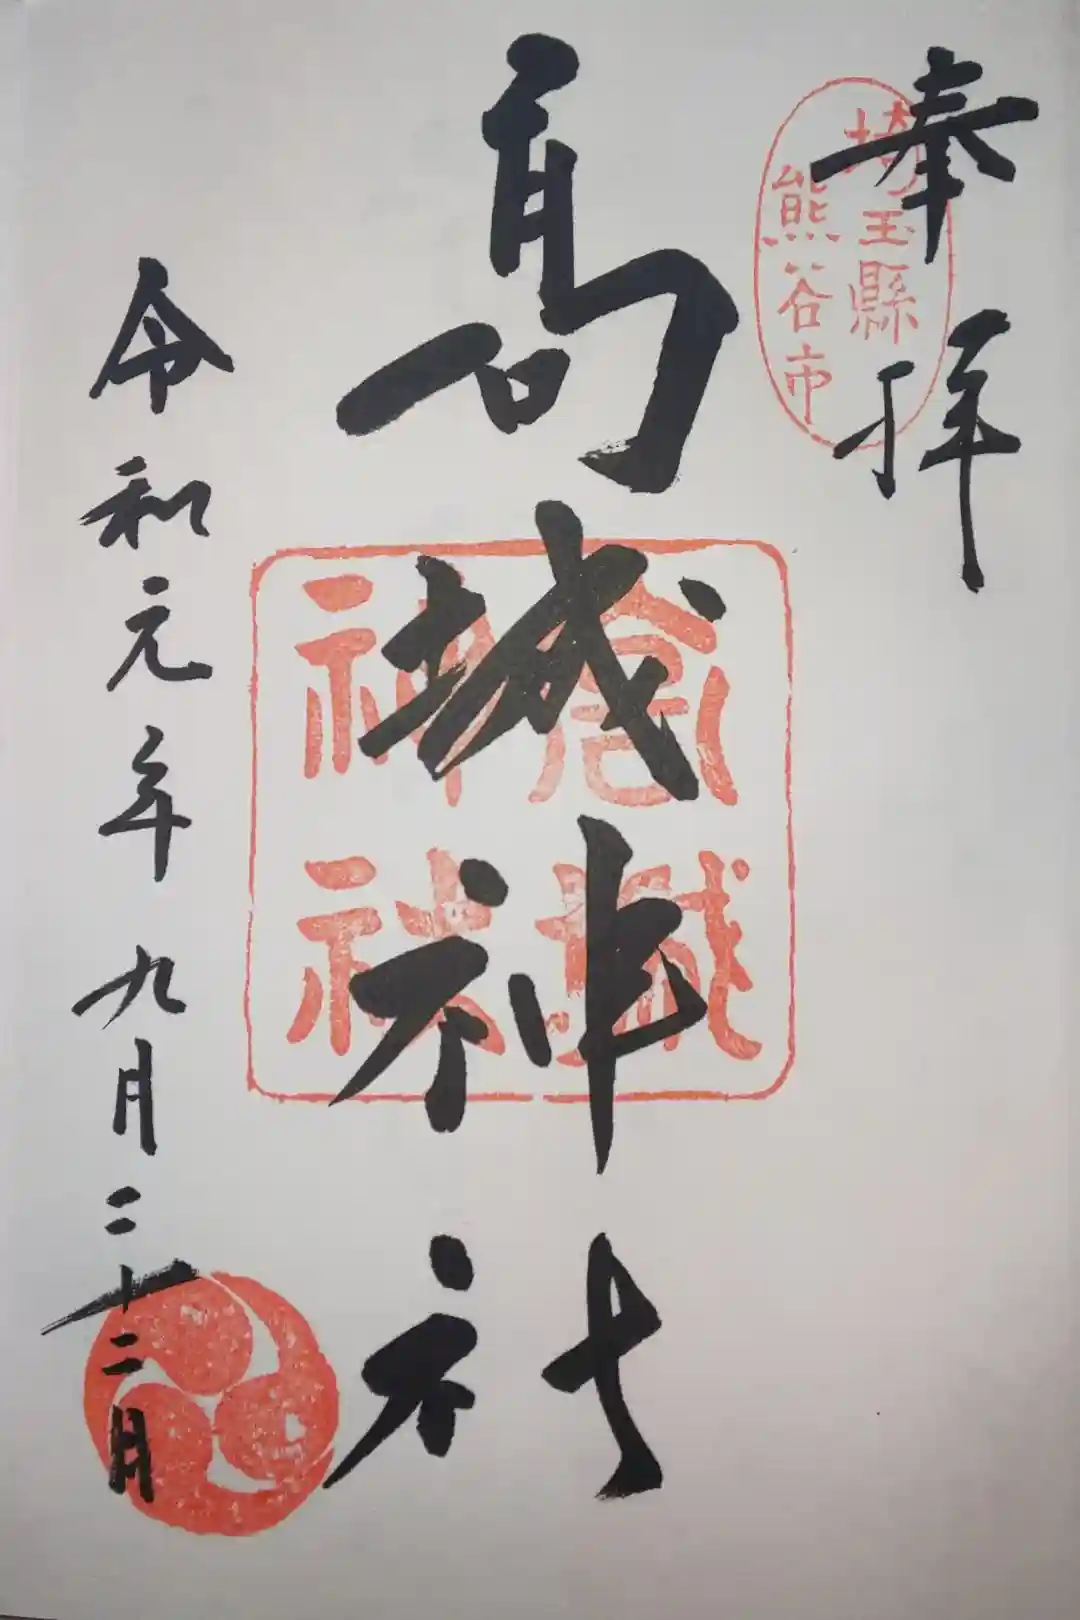 奉拝
埼玉縣
熊谷市
高城神社
高城
神社
令和元年九月二十二日